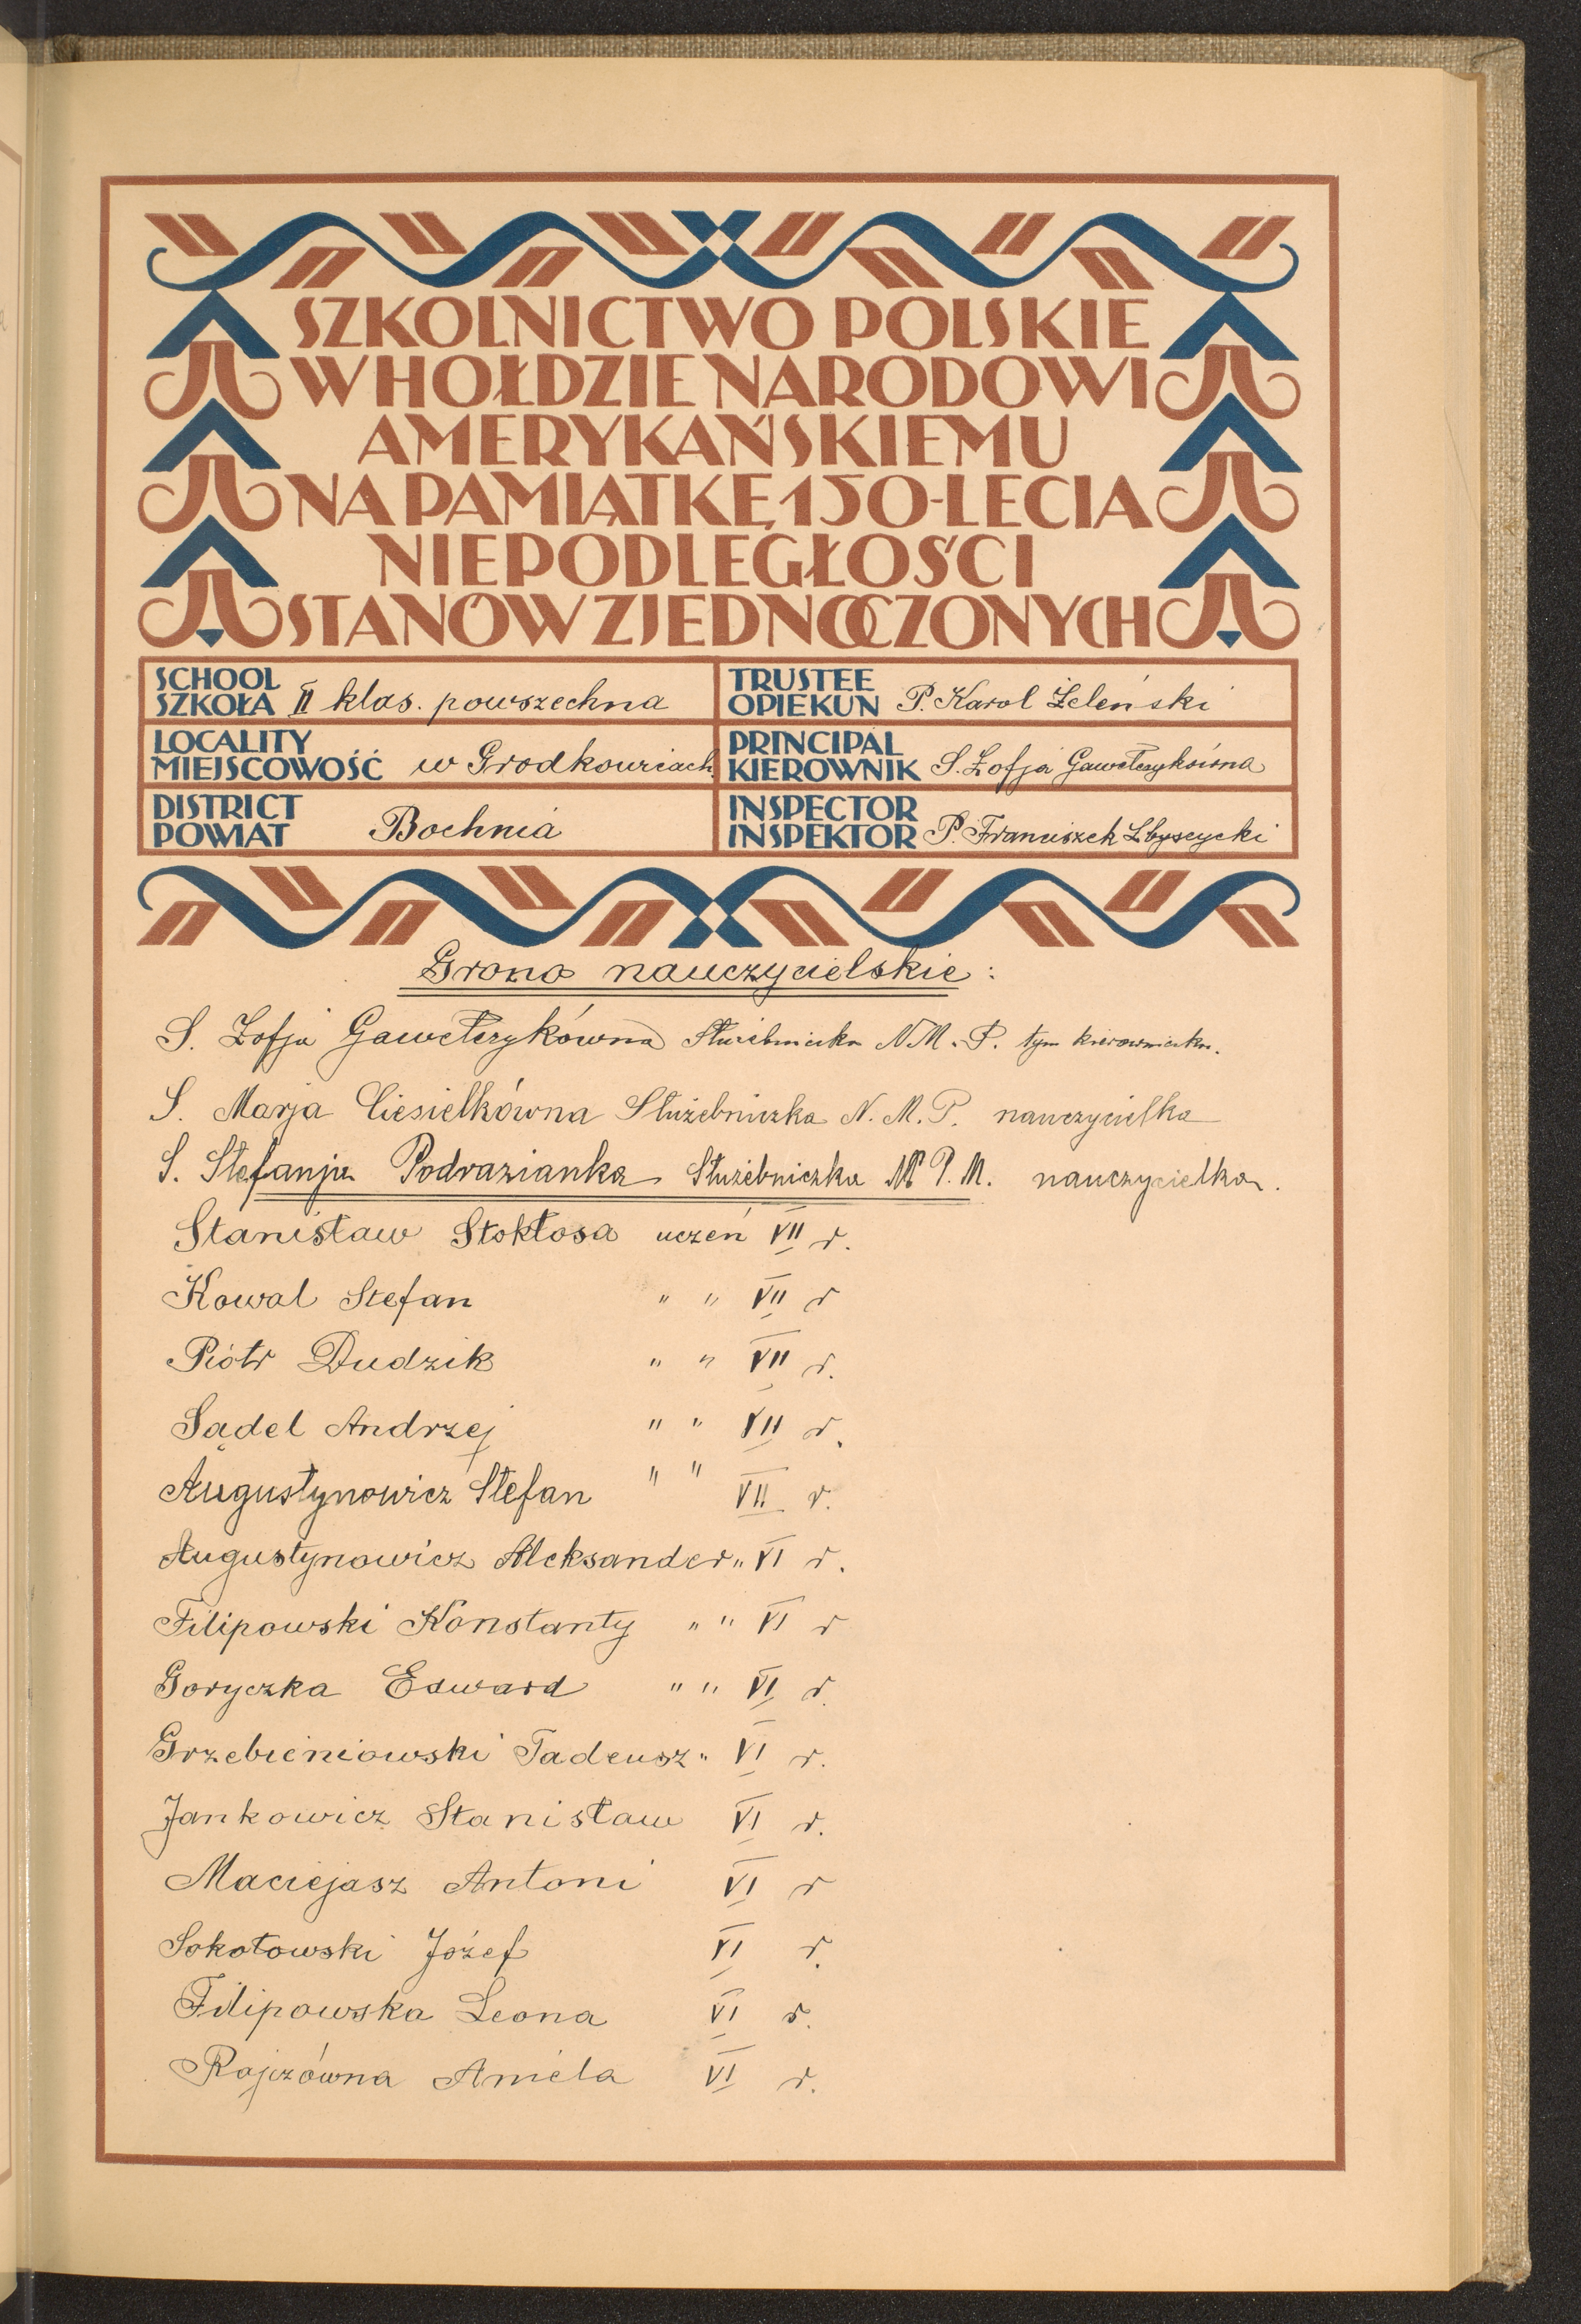 SZKOLNICTWO POLSKIE
W HOŁDZIE NARODOWI
AMERYKAŃSKIEMU
NA PAMIĄTKĘ 150-LECIA
NIEPODLEGŁOŚCI
STANÓW ZJEDNOCZONYCH
SCHOOL
SZKOŁA II klas. powszechna
TRUSTEE
OPIEKUN P. Karol Żeleński
LOCALITY
MIEJSCOWOŚĆ w Grodkowicach
PRINCIPAL
KIEROWNIK S. Zofja Gawełczykówna
DISTRICT
POWIAT Bochnia
INSPECTOR
INSPEKTOR P. Franciszek Zbyszycki
Grono nauczycielskie:
S. Zofja Gawełczykówna Służebniczka N.M.P. tym kierowniczka.
S. Marja Ciesielkówna Służebniczka N. M. P. nauczycielka
S. Stefanja Podrazianka Służebniczka N. P. M. nauczycielka.
Stanisław Stokłosa uczeń VII r.
Kowal Stefan " " VII r
Piotr Dudzik " " VII r.
Sądel Andrzej " " VII r.
Augustynowicz Stefan " " VII r.
Augustynowicz Aleksander " VI r.
Filipowski Konstanty " " VI r
Goryczka Edward " " VI r.
Grzebieniowski Tadeusz " VI r.
Jankowicz Stanisław VI r.
Maciejasz Antoni VI r
Sokołowski Józef VI r.
Filipowska Leona VI r.
Rajczówna Aniela VI r.